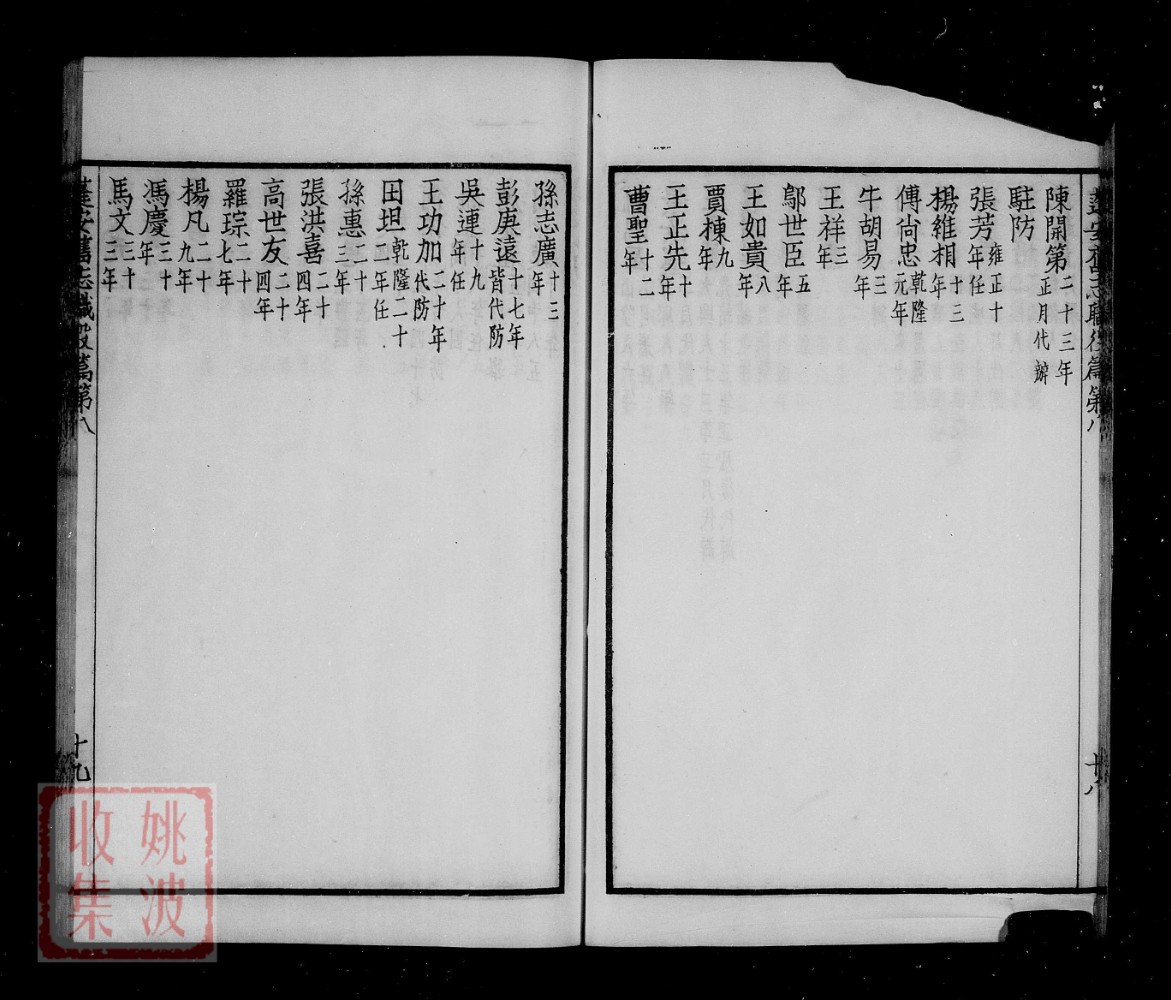 蓬安舊志職役篇第八
十八
陳開第二十三年正月代辦
駐防
張芳雍正十年任
楊維相十三年
傅尚忠乾隆元年
牛胡易三年
王祥三年
鄔世臣五年
王如貴八年
賈棟九年
王正先十年
曹聖十二年
孫志廣十三年
彭庚遠十七年皆代防
吳連十九年任
王功加二十年代防
田坦乾隆二十二年任
孫惠二十三年
張洪喜二十四年
高世友二十四年
羅琮二十七年
楊凡二十九年
馮慶三十年
馬文三十三年
蓬安舊志職役篇第八
十九
姚波
收集